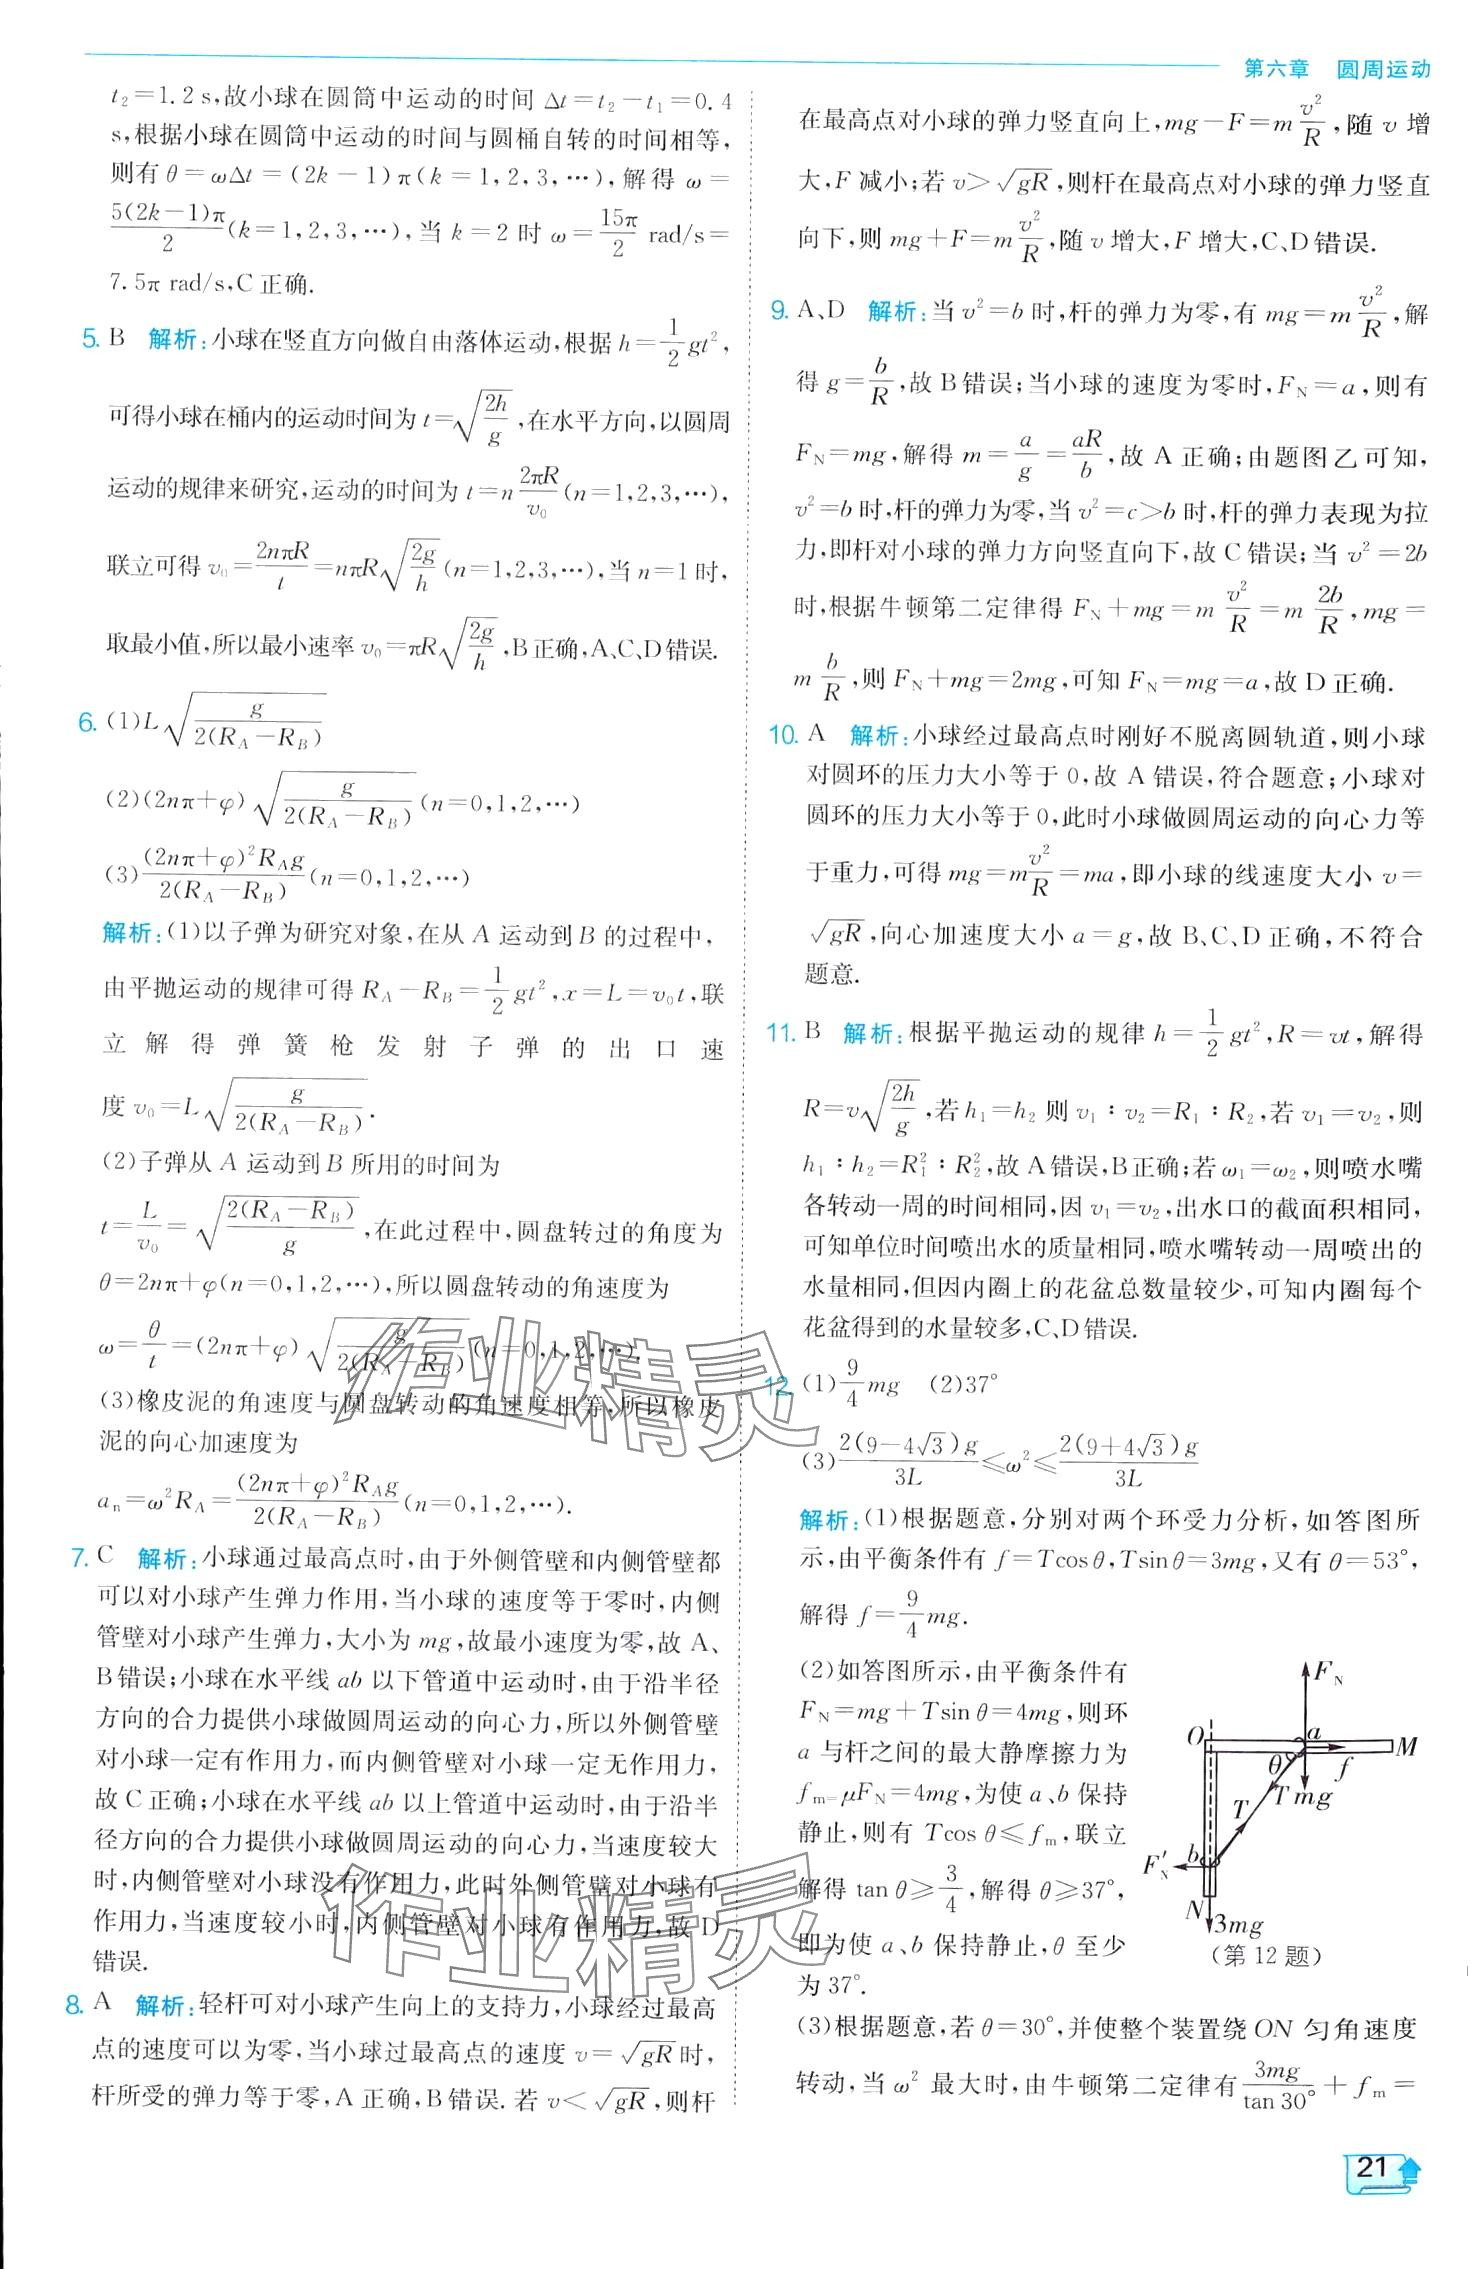 第六章 圆周运动
t₂=1.2 s,故小球在圆筒中运动的时间 Δt=t₂-t₁=0.4
s,根据小球在圆筒中运动的时间与圆桶自转的时间相等,
则有 θ=ωΔt=(2k-1)π(k=1,2,3,…),解得 ω=
5(2k-1)π/2(k=1,2,3,…),当 k=2 时 ω=15π/2 rad/s=
7.5π rad/s,C 正确.
5. B 解析:小球在竖直方向做自由落体运动,根据 h=1/2 gt²,
可得小球在桶内的运动时间为 t=√(2h/g),在水平方向,以圆周
运动的规律来研究,运动的时间为 t=n 2πR/v₀(n=1,2,3,…),
联立可得 v₀=2nπR/t=nπR√(2g/h)(n=1,2,3,…),当 n=1 时,
取最小值,所以最小速率 v₀=πR√(2g/h),B 正确,A、C、D 错误.
6. (1)L√(g/2(R_A-R_B))
(2)(2nπ+φ)√(g/2(R_A-R_B))(n=0,1,2,…)
(3)(2nπ+φ)²R_A g/2(R_A-R_B)(n=0,1,2,…)
解析:(1)以子弹为研究对象,在从 A 运动到 B 的过程中,
由平抛运动的规律可得 R_A-R_B=1/2 gt²,x=L=v₀t,联
立解得弹簧枪发射子弹的出口速
度 v₀=L√(g/2(R_A-R_B)).
(2)子弹从 A 运动到 B 所用的时间为
t=L/v₀=√(2(R_A-R_B)/g),在此过程中,圆盘转过的角度为
θ=2nπ+φ(n=0,1,2,…),所以圆盘转动的角速度为
ω=θ/t=(2nπ+φ)√(g/2(R_A-R_B))(n=0,1,2,…).
(3)橡皮泥的角速度与圆盘转动的角速度相等,所以橡皮
泥的向心加速度为
aₙ=ω²R_A=(2nπ+φ)²R_A g/2(R_A-R_B)(n=0,1,2,…).
7. C 解析:小球通过最高点时,由于外侧管壁和内侧管壁都
可以对小球产生弹力作用,当小球的速度等于零时,内侧
管壁对小球产生弹力,大小为 mg,故最小速度为零,故 A、
B 错误;小球在水平线 ab 以下管道中运动时,由于沿半径
方向的合力提供小球做圆周运动的向心力,所以外侧管壁
对小球一定有作用力,而内侧管壁对小球一定无作用力,
故 C 正确;小球在水平线 ab 以上管道中运动时,由于沿半
径方向的合力提供小球做圆周运动的向心力,当速度较大
时,内侧管壁对小球没有作用力,此时外侧管壁对小球有
作用力,当速度较小时,内侧管壁对小球有作用力,故 D
错误.
8. A 解析:轻杆可对小球产生向上的支持力,小球经过最高
点的速度可以为零,当小球过最高点的速度 v=√(gR)时,
杆所受的弹力等于零,A 正确,B 错误.若 v<√(gR),则杆
在最高点对小球的弹力竖直向上,mg-F=m v²/R,随 v 增
大,F 减小;若 v>√(gR),则杆在最高点对小球的弹力竖直
向下,则 mg+F=m v²/R,随 v 增大,F 增大,C、D 错误.
9. A、D 解析:当 v²=b 时,杆的弹力为零,有 mg=m v²/R,解
得 g=b/R,故 B 错误;当小球的速度为零时,F_N=a,则有
F_N=mg,解得 m=a/g=aR/b,故 A 正确;由题图乙可知,
v²=b 时,杆的弹力为零,当 v²=c>b 时,杆的弹力表现为拉
力,即杆对小球的弹力方向竖直向下,故 C 错误;当 v²=2b
时,根据牛顿第二定律得 F_N+mg=m v²/R=m 2b/R,mg=
m b/R,则 F_N+mg=2mg,可知 F_N=mg=a,故 D 正确.
10. A 解析:小球经过最高点时刚好不脱离圆轨道,则小球
对圆环的压力大小等于 0,故 A 错误,符合题意;小球对
圆环的压力大小等于 0,此时小球做圆周运动的向心力等
于重力,可得 mg=m v²/R=ma,即小球的线速度大小 v=
√(gR),向心加速度大小 a=g,故 B、C、D 正确,不符合
题意.
11. B 解析:根据平抛运动的规律 h=1/2 gt²,R=vt,解得
R=v√(2h/g),若 h₁=h₂ 则 v₁∶v₂=R₁∶R₂,若 v₁=v₂,则
h₁∶h₂=R₁²∶R₂²,故 A 错误,B 正确;若 ω₁=ω₂,则喷水嘴
各转动一周的时间相同,因 v₁=v₂,出水口的截面积相同,
可知单位时间喷出水的质量相同,喷水嘴转动一周喷出的
水量相同,但因内圈上的花盆总数量较少,可知内圈每个
花盆得到的水量较多,C、D 错误.
12. (1)9/4 mg (2)37°
(3)2(9-4√3)g/3L≤ω²≤2(9+4√3)g/3L
解析:(1)根据题意,分别对两个环受力分析,如答图所
示,由平衡条件有 f=Tcos θ,Tsin θ=3mg,又有 θ=53°,
解得 f=9/4 mg.
(2)如答图所示,由平衡条件有
F_N=mg+Tsin θ=4mg,则环
a 与杆之间的最大静摩擦力为
f_m=μF_N=4mg,为使 a、b 保持
静止,则有 Tcos θ≤f_m,联立
解得 tan θ≥3/4,解得 θ≥37°,
即为使 a、b 保持静止,θ 至少
为 37°.
F_N
O
a
M
θ
f
T
mg
T
F′_N
b
N
3mg
(第 12 题)
(3)根据题意,若 θ=30°,并使整个装置绕 ON 匀角速度
转动,当 ω² 最大时,由牛顿第二定律有 3mg/tan 30°+f_m=
21
作业精灵
作业精灵